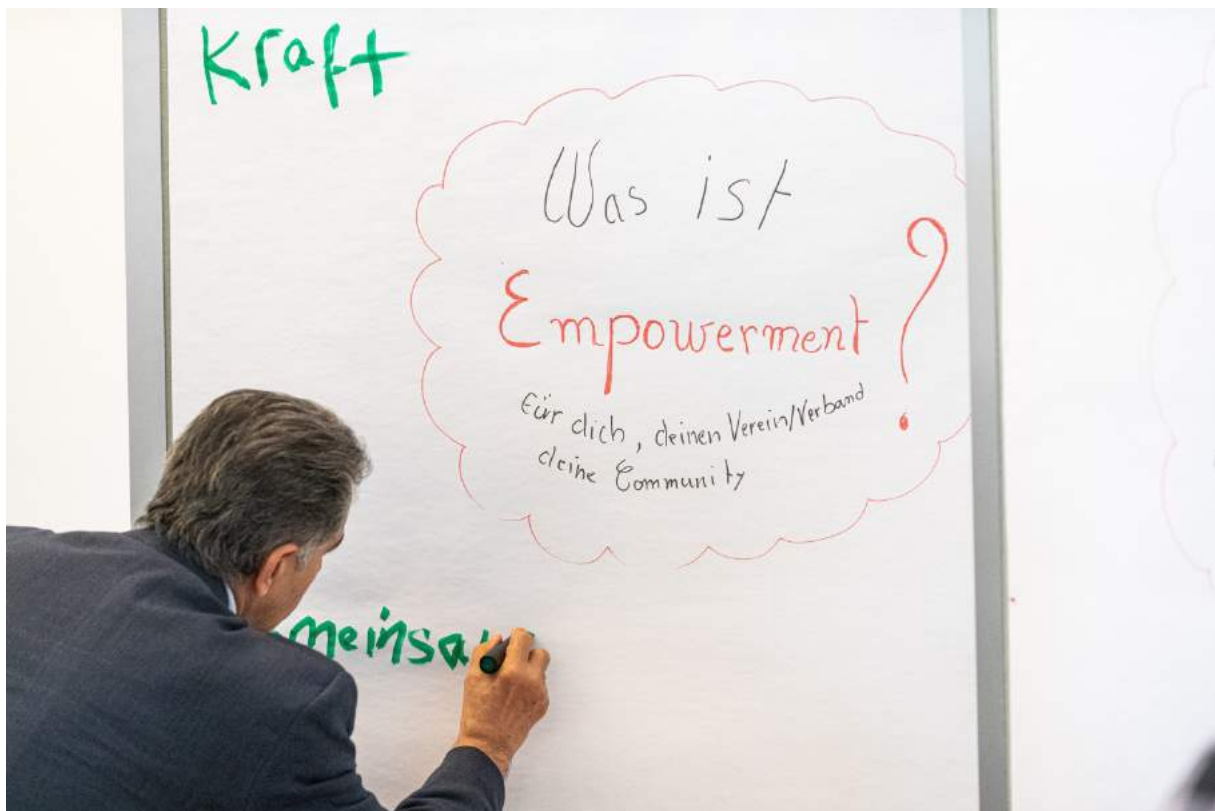 Kraft
Was ist
Empowerment?
für dich, deinen Verein/Verband
deine Community
meinsa